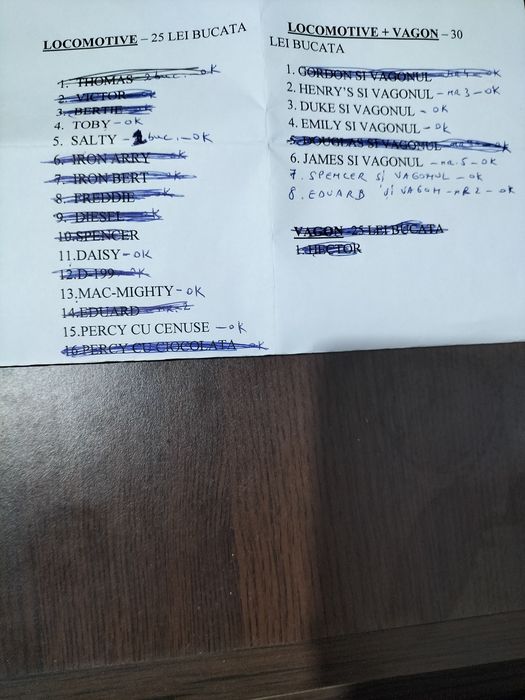 LOCOMOTIVE – 25 LEI BUCATA
1. THOMAS 2 buc. - OK
2. VICTOR - OK
3. BERTIE - OK
4. TOBY - OK
5. SALTY - 1 buc. - OK
6. IRON ARRY - OK
7. IRON BERT - OK
8. FREDDIE - OK
9. DIESEL - OK
10.SPENCER
11.DAISY - OK
12.D-199 - OK
13.MAC-MIGHTY - OK
14.EDUARD - NR. 2
15.PERCY CU CENUSE - OK
16.PERCY CU CIOCOLATA - OK
LOCOMOTIVE + VAGON – 30
LEI BUCATA
1. GORDON SI VAGONUL - OK
2. HENRY'S SI VAGONUL - NR 3 - OK
3. DUKE SI VAGONUL - OK
4. EMILY SI VAGONUL - OK
5. DOUGLAS SI VAGONUL - OK
6. JAMES SI VAGONUL - NR. 5 - OK
7. SPENCER și VAGONUL - OK
8. EDUARD și VAGON - NR 2 - OK
VAGON -25 LEI BUCATA
1. HECTOR